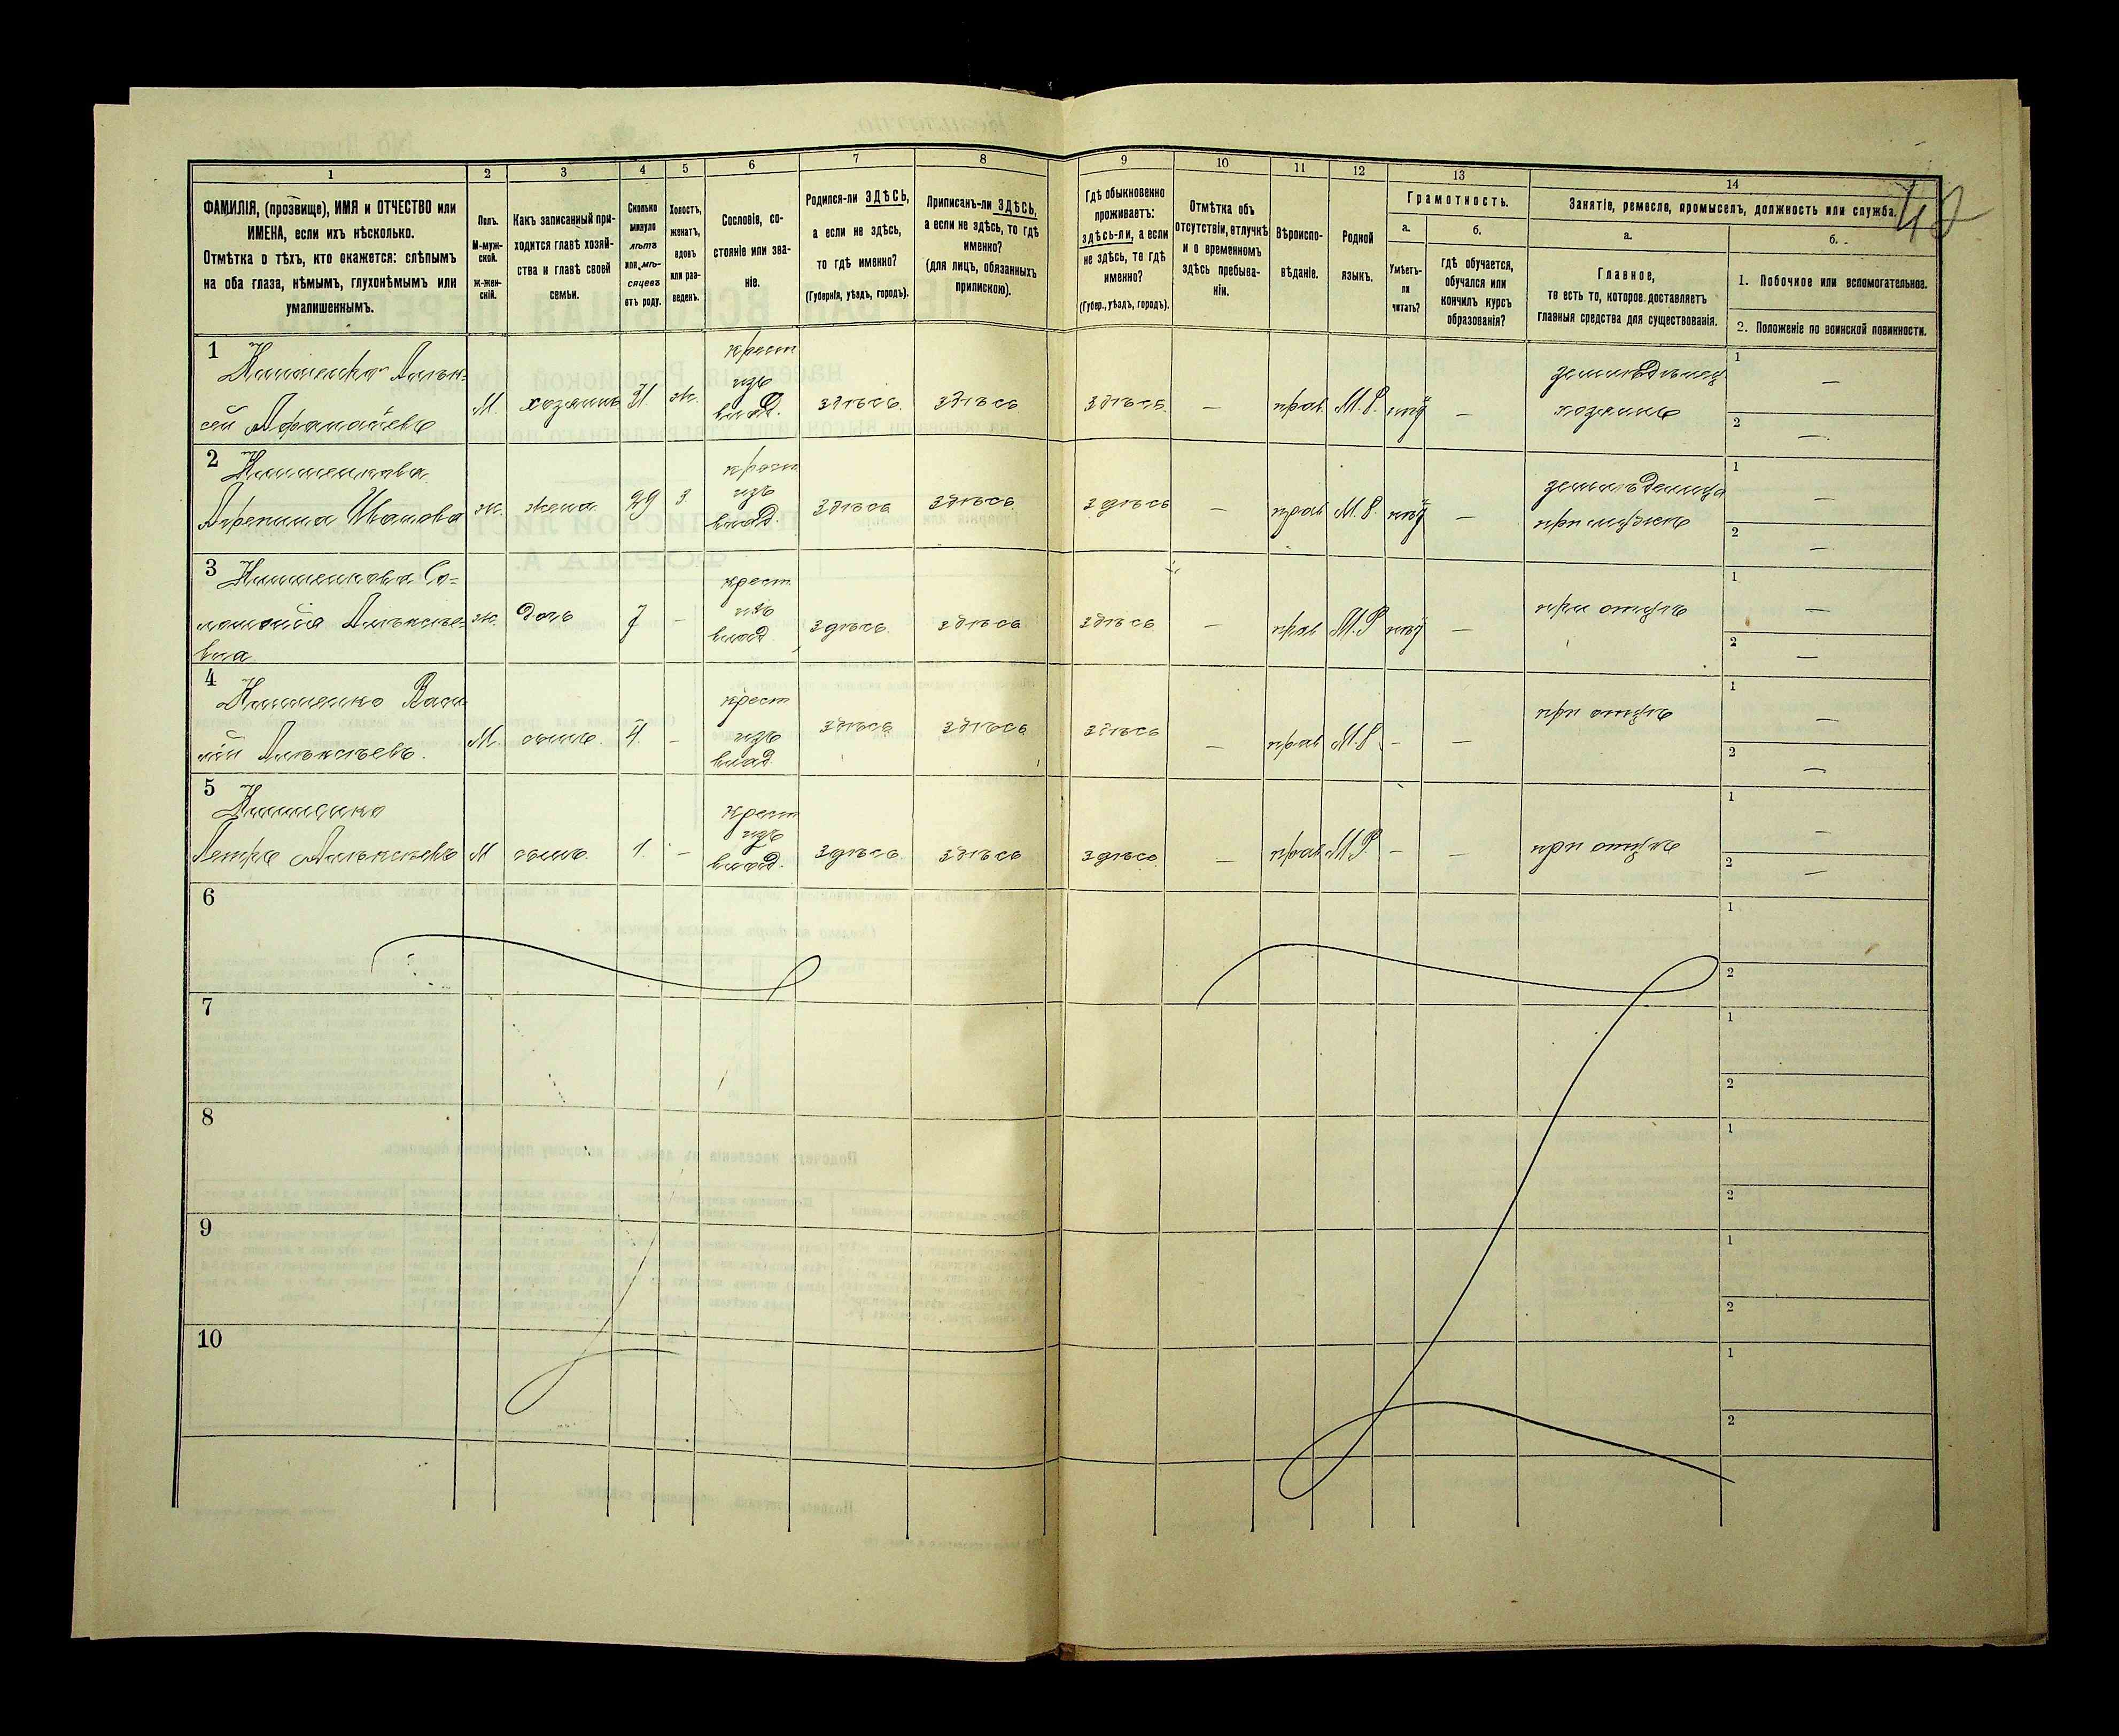 1
2
3
4
5
6
7
8
9
10
11
12
13
14
ФАМИЛІЯ, (прозвище), ИМЯ и ОТЧЕСТВО или
ИМЕНА, если ихъ нѣсколько.
Отмѣтка о тѣхъ, кто окажется: слѣпымъ
на оба глаза, нѣмымъ, глухонѣмымъ или
умалишеннымъ.
Полъ.
М-муж-
ской.
ж-жен-
скій.
Какъ записанный при-
ходится главѣ хозяй-
ства и главѣ своей
семьи.
Сколько
минуло
лѣтъ
или мѣ-
сяцевъ
отъ роду.
Холостъ,
женатъ,
вдовъ
или раз-
веденъ.
Сословіе, со-
стояніе или зва-
ніе.
Родился-ли ЗДѢСЬ,
а если не здѣсь,
то гдѣ именно?
(Губернія, уѣздъ, городъ).
Приписанъ-ли ЗДѢСЬ,
а если не здѣсь, то гдѣ
именно?
(для лицъ, обязанныхъ
припискою).
Гдѣ обыкновенно
проживаетъ:
здѣсь-ли, а если
не здѣсь, то гдѣ
именно?
(Губер., уѣздъ, городъ).
Отмѣтка объ
отсутствіи, отлучкѣ
и о временномъ
здѣсь пребыва-
ніи.
Вѣроиспо-
вѣданіе.
Родной
языкъ.
Грамотность.
а.
Умѣетъ-
ли
читать?
б.
Гдѣ обучается,
обучался или
кончилъ курсъ
образованія?
Занятіе, ремесло, промыселъ, должность или служба.
а.
Главное,
то есть то, которое доставляетъ
главныя средства для существованія.
б.
1. Побочное или вспомогательное.
2. Положеніе по воинской повинности.
1
Алек-
сѣй
М. хозяинъ 31. ж.
крест
изъ
влад.
здѣсь. здѣсь здѣсь. — прав. М.Р. нѣтъ —
земледѣлец
хозяинъ
1 —
2 —
2
Ивановa
ж. жена 29 з.
крест
изъ
влад.
здѣсь здѣсь здѣсь — прав М.Р. нѣтъ —
земледелица
при мужѣ
1 —
2 —
3
Алексѣе-
вна
ж. дочь 7 —
крест
изъ
влад
здѣсь. здѣсь здѣсь — прав М.Р нѣтъ —
при отцѣ
1 —
2 —
4
Васи-
лій Алексѣевъ.
М. сынъ. 4. —
крест
изъ
влад.
здѣсь здѣсь здѣсь — прав М.Р. — —
при отцѣ
1 —
2 —
5
Петръ Алексѣевъ М сынъ 1. —
крест
изъ
влад.
здѣсь. здѣсь здѣсь — прав М.Р. — —
при отцѣ
1 —
2 —
6
1
2
7
1
2
8
1
2
9
1
2
10
1
2